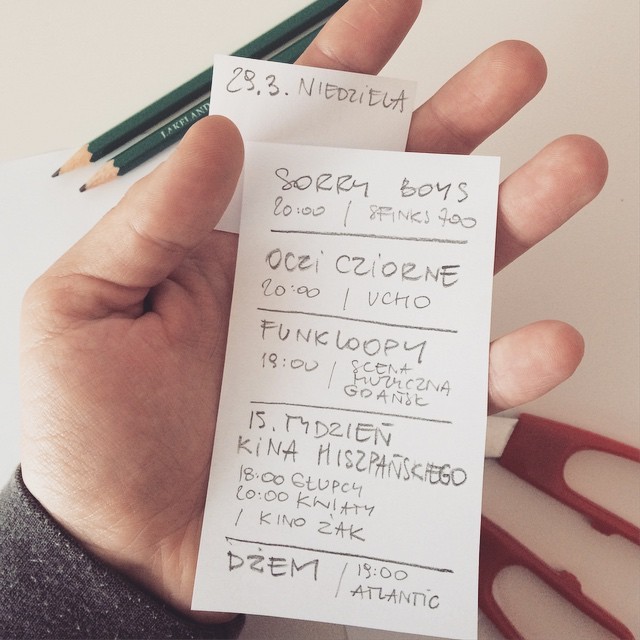 29.3. NIEDZIELA
LAKELAND
SORRY BOYS
20:00 / SFINKS 700
OCZI CZIORNE
20:00 / UCHO
FUNKLOOPY
19:00 / SCENA
MUZYCZNA
GDAŃSK
15. TYDZIEŃ
KINA HISZPAŃSKIEGO
18:00 GŁUPCY
20:00 KWIATY
/ KINO ŻAK
DŻEM / 19:00
ATLANTIC